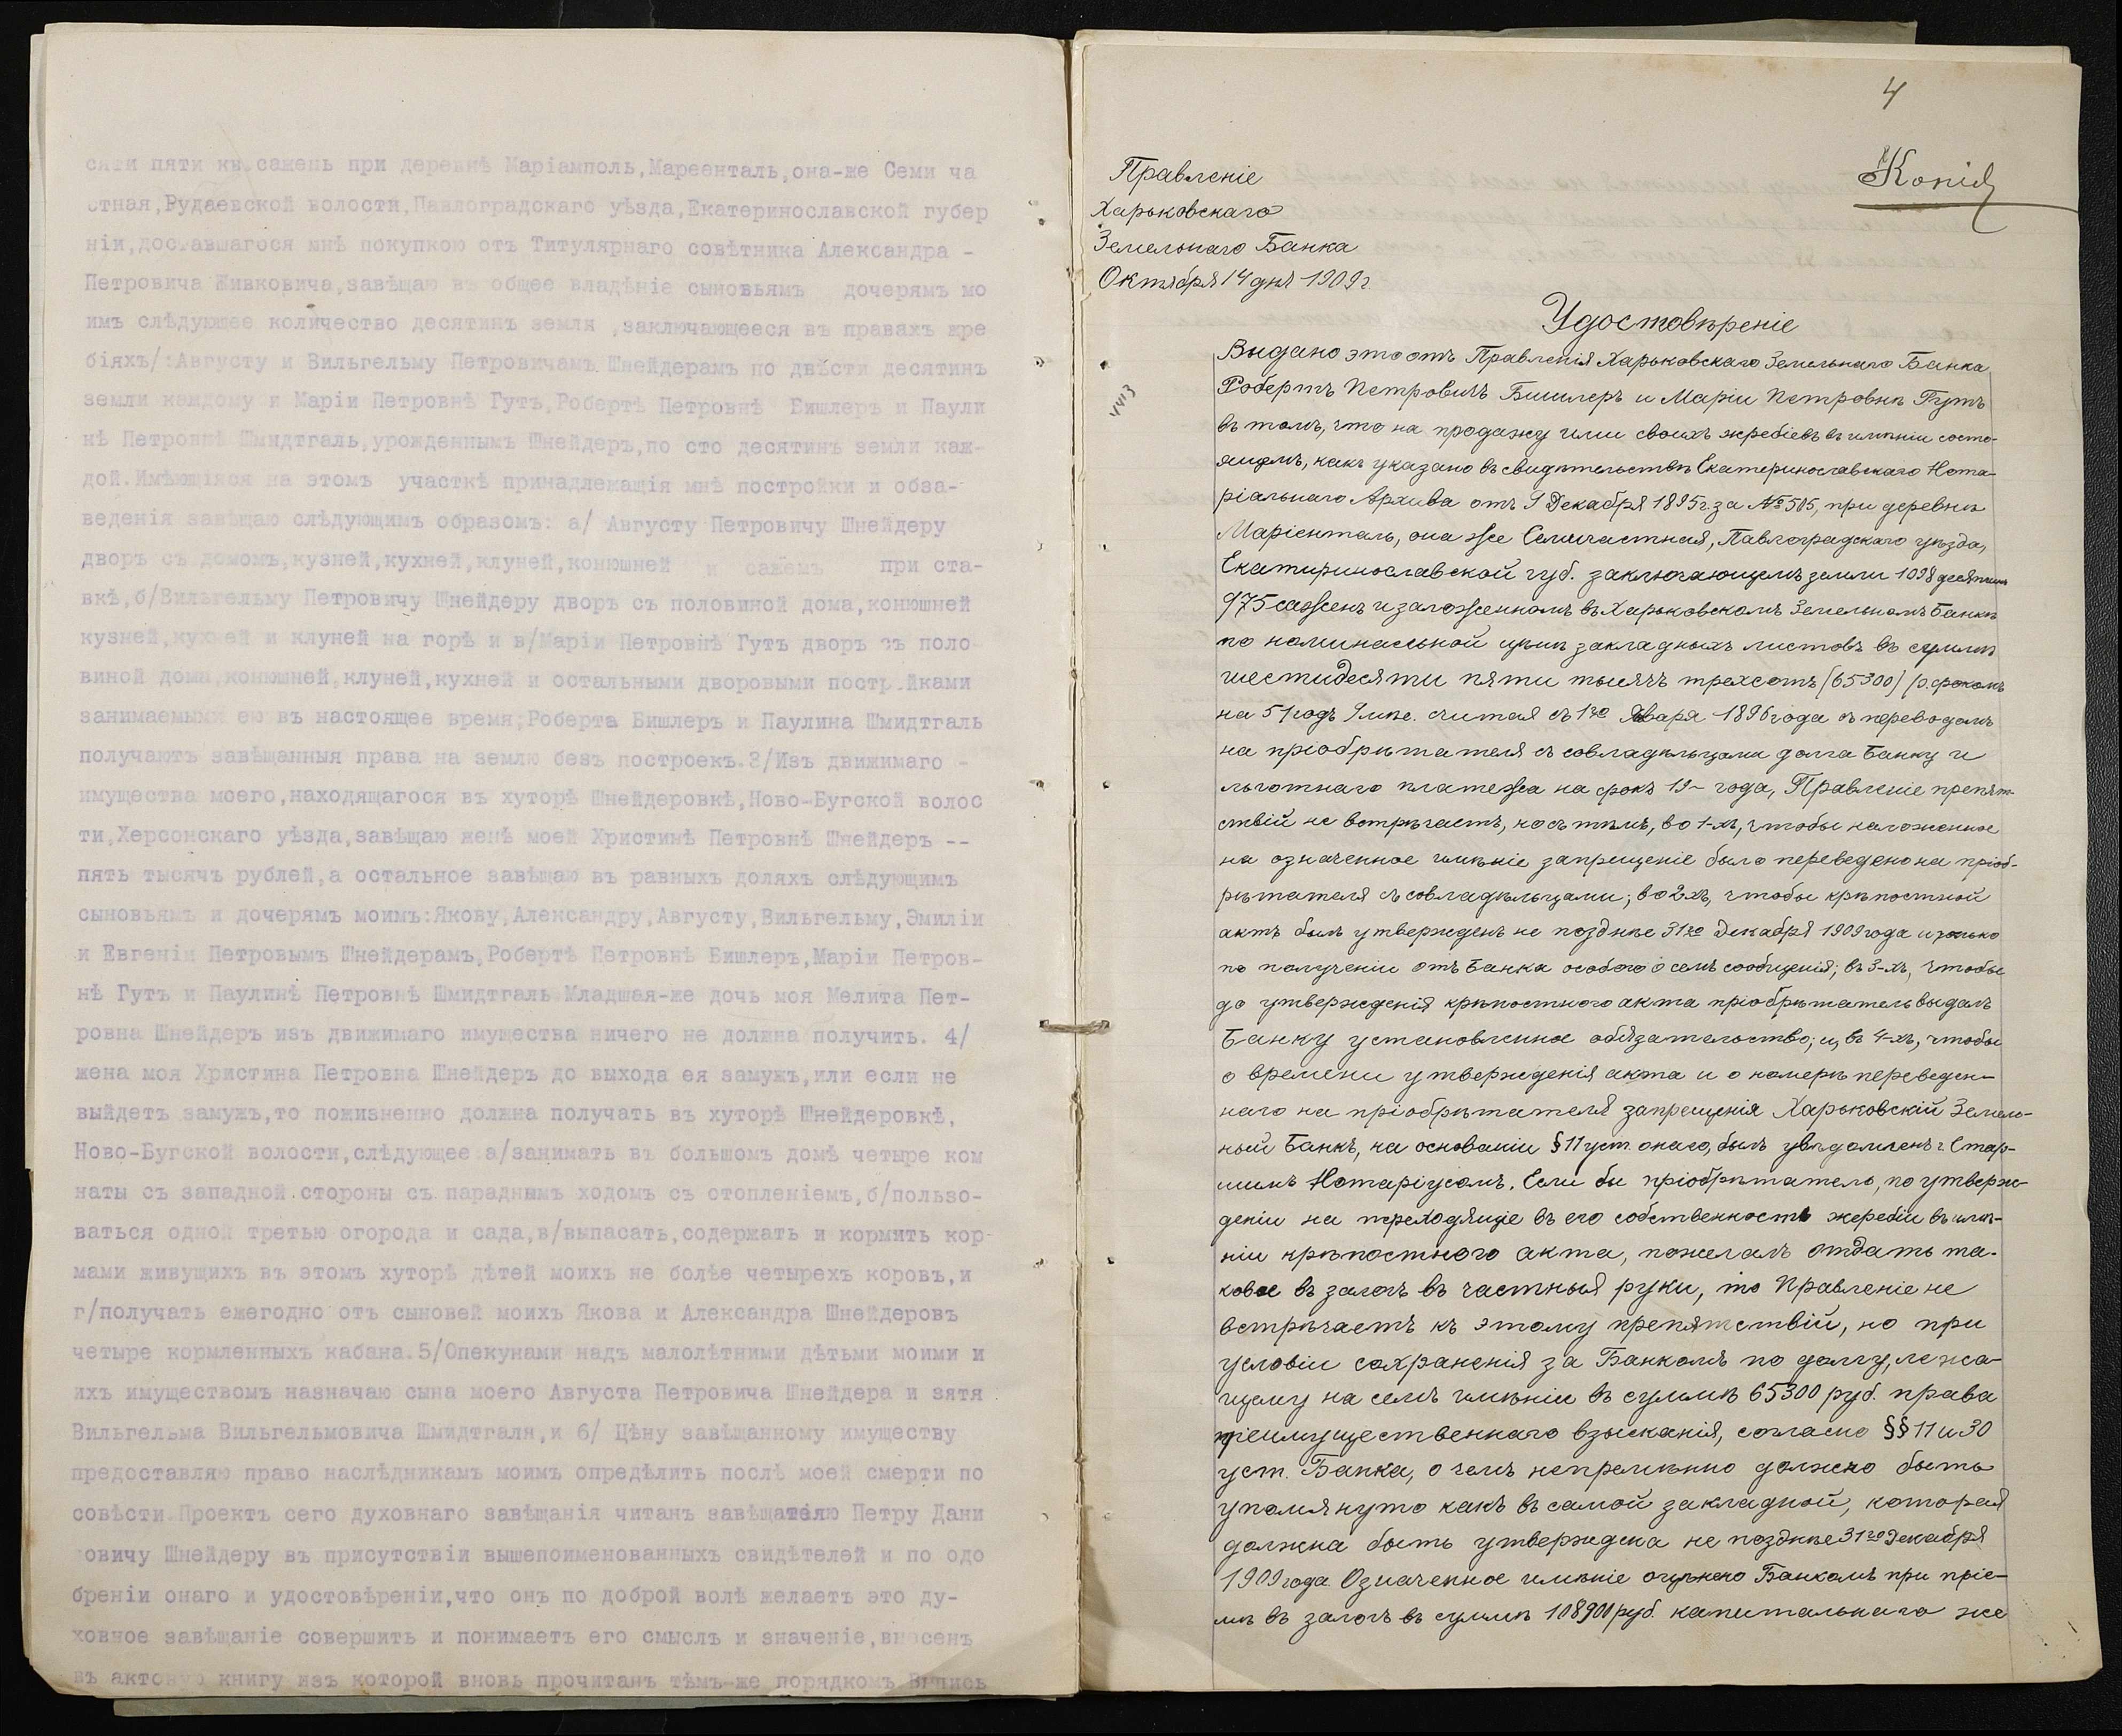 сяти пяти кв.сажень при деревнѣ Маріамполь,Мареенталь,она-же Семи ча
стная,Рудаевской волости,Павлоградскаго уѣзда,Екатеринославской губер
ніи,доставшагося мнѣ покупкою отъ Титулярнаго совѣтника Александра -
Петровича Живковича,завѣщаю въ общее владѣніе сыновьямъ дочерямъ мо
имъ слѣдующее количество десятинъ земли ,заключающееся въ правахъ жре
біяхъ/:Августу и Вильгельму Петровичамъ Шнейдерамъ по двѣсти десятинъ
земли каждому я Маріи Петровнѣ Гутъ,Робертѣ Петровнѣ Бишлеръ и Паули
нѣ Петровнѣ Шмидтгаль,урожденнымъ Шнейдеръ,по сто десятинъ земли каж-
дой.Имѣющіяся на этомъ участкѣ принадлежащія мнѣ постройки и обза-
веденія завѣщаю слѣдующимъ образомъ: а/ Августу Петровичу Шнейдеру
дворъ съ домомъ,кузней,кухней,клуней,конюшней и сажемъ при ста-
вкѣ,б/Вильгельму Петровичу Шнейдеру дворъ съ половиной дома,конюшней
кузней,кухней и клуней на горѣ и в/Маріи Петровнѣ Гутъ дворъ съ поло
виной дома,конюшней,клуней,кухней и остальными дворовыми постройками
занимаемыми ею въ настоящее время;Роберта Бишлеръ и Паулина Шмидтгаль
получаютъ завѣщанныя права на землю безъ построекъ.3/Изъ движимаго -
имущества моего,находящагося въ хуторѣ Шнейдеровкѣ,Ново-Бугской волос
ти,Херсонскаго уѣзда,завѣщаю женѣ моей Христинѣ Петровнѣ Шнейдеръ --
пять тысячъ рублей,а остальное завѣщаю въ равныхъ доляхъ слѣдующимъ
сыновьямъ и дочерямъ моимъ:Якову,Александру,Августу,Вильгельму,Эмиліи
и Евгеніи Петровымъ Шнейдерамъ,Робертѣ Петровнѣ Бишлеръ,Маріи Петров-
нѣ Гутъ и Паулинѣ Петровнѣ Шмидтгаль Младшая-же дочь моя Мелита Пет-
ровна Шнейдеръ изъ движимаго имущества ничего не должна получить. 4/
жена моя Христина Петровна Шнейдеръ до выхода ея замужъ,или если не
выйдетъ замужъ,то пожизненно должна получать въ хуторѣ Шнейдеровкѣ,
Ново-Бугской волости,слѣдующее а/занимать въ большомъ домѣ четыре ком
наты съ западной стороны съ параднымъ ходомъ съ отопленіемъ,б/пользо-
ваться одной третью огорода и сада,в/выпасать,содержать и кормить кор-
мами живущихъ въ этомъ хуторѣ дѣтей моихъ не болѣе четырехъ коровъ,и
г/получать ежегодно отъ сыновей моихъ Якова и Александра Шнейдеровъ
четыре кормленныхъ кабана.5/Опекунами надъ малолѣтними дѣтьми моими и
ихъ имуществомъ назначаю сына моего Августа Петровича Шнейдера и зятя
Вильгельма Вильгельмовича Шмидтгаля,и 6/ Цѣну завѣщанному имуществу
предоставляю право наслѣдникамъ моимъ опредѣлить послѣ моей смерти по
совѣсти.Проектъ сего духовнаго завѣщанія читанъ завѣщателю Петру Дани
овичу Шнейдеру въ присутствіи вышепоименованныхъ свидѣтелей и по одо
бреніи онаго и удостовѣреніи,что онъ по доброй волѣ желаетъ это ду-
ховное завѣщаніе совершить и понимаетъ его смыслъ и значеніе,внесенъ
въ актовую книгу изъ которой вновь прочитанъ тѣмъ-же порядкомъ Выпись
4
Копія
Правленіе
Харьковскаго
Земельнаго Банка
Октября 14 дня 1909 г
Удостовѣреніе
Выдано это отъ Правленія Харьковскаго Земельнаго Банка
Робертѣ Петровнѣ Бишлеръ и Маріи Петровнѣ Гутъ
въ томъ, что на продажу ими своихъ жребіевъ въ имѣніи состо-
ящемъ, какъ указано въ свидѣтельствѣ Екатеринославскаго Нота-
ріальнаго Архива отъ 9 Декабря 1895 г. за № 505, при деревнѣ
Маріенталь, она же Семичастная, Павлоградскаго уѣзда,
Екатиринославской губ. заключающемъ земли 1098 десятинъ
975 сажень и заложенномъ въ Харьковскомъ Земельномъ Банкѣ
по номинальной цѣнѣ закладныхъ листовъ въ суммѣ
шестидесяти пяти тысячъ трехсотъ (65300) р. срокомъ
на 51 годъ 9 мѣс. считая съ 1го Января 1896 года съ переводомъ
на пріобрѣтателя съ совладѣльцами долга Банку и
льготнаго платежа на срокъ 19- года, Правленіе препят-
ствій не встрѣчаетъ, но съ тѣмъ, во 1-хъ, чтобы наложенное
на означенное имѣніе запрещеніе было переведено на пріоб-
рѣтателя съ совладѣльцами; во 2хъ, чтобы крѣпостной
актъ былъ утвержденъ не позднѣе 31го Декабря 1909 года и только
по полученіи отъ Банка особого о семъ сообщенія; въ 3-хъ, чтобы
до утвержденія крѣпостного акта пріобрѣтатель выдалъ
Банку установленное обязательство; и, въ 4-хъ, чтобы
о времени утвержденія акта и о номерѣ переведен-
наго на пріобрѣтателя запрещенія Харьковскій Земель-
ный Банкъ, на основаніи § 11 уст. онаго, былъ увѣдомленъ г. Стар-
шимъ Нотаріусомъ. Если бы пріобрѣтатель, по утверж-
деніи на переходящіе въ его собственность жеребіи въ имѣ-
ніи крѣпостного акта, пожелалъ отдать та-
ковое въ залогъ въ частныя руки, то Правленіе не
встрѣчаетъ къ этому препятствій, но при
условіи сохраненія за Банкомъ по долгу, лежа-
щему на семъ имѣніи въ суммѣ 65300 руб. права
преимущественнаго взысканія, согласно §§ 11 и 30
уст. Банка, о чемъ непремѣнно должно быть
упомянуто какъ въ самой закладной, которая
должна быть утверждена не позднѣе 31го Декабря
1909 года. Означенное имѣніе оцѣнено Банкомъ при пріе-
мѣ въ залогъ въ суммѣ 108900 руб. капитальнаго же